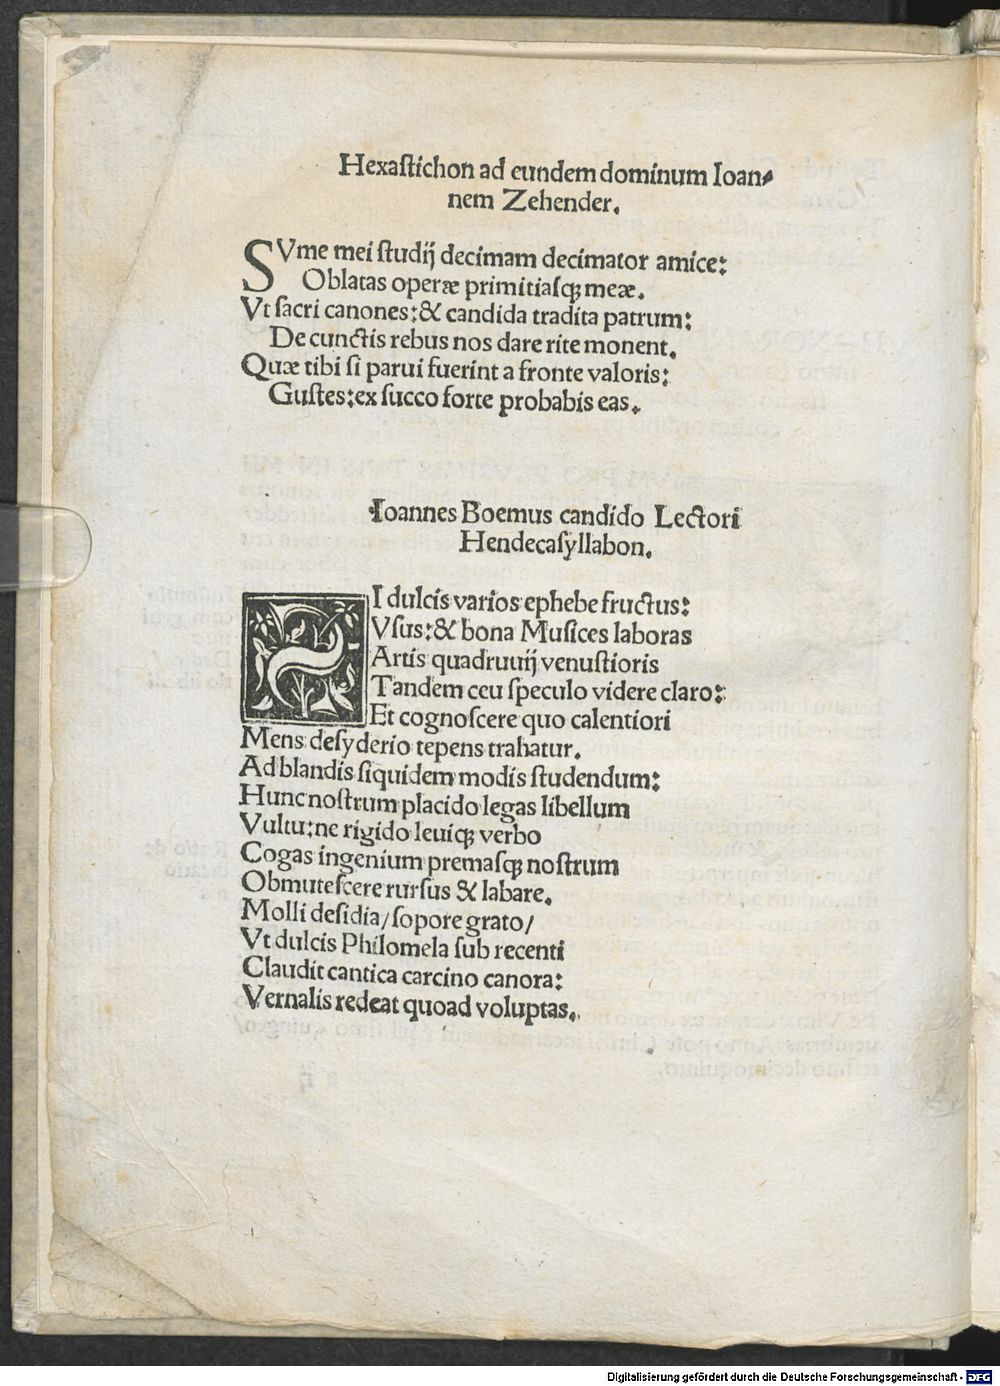 Hexaſtichon ad eundem dominum Ioan⸗
nem Zehender.
SVme mei ſtudij decimam decimator amice:
Oblatas operæ primitiaſqꝫ meæ.
Vt ſacri canones: & candida tradita patrum:
De cunctis rebus nos dare rite monent.
Quæ tibi ſi parui fuerint a fronte valoris:
Guſtes: ex ſucco forte probabis eas.
Ioannes Boemus candido Lectori
Hendecaſyllabon.
SI dulcis varios ephebe fructus:
Vſus: & bona Muſices laboras
Artis quadruuij venuſtioris
Tandem ceu ſpeculo videre claro:
Et cognoſcere quo calentiori
Mens deſyderio tepens trahatur.
Ad blandis ſiquidem modis ſtudendum:
Hunc noſtrum placido legas libellum
Vultu: ne rigido leuiqꝫ verbo
Cogas ingenium premaſqꝫ noſtrum
Obmuteſcere rurſus & labare.
Molli deſidia/ ſopore grato/
Vt dulcis Philomela ſub recenti
Claudit cantica carcino canora:
Vernalis redeat quoad voluptas.
Digitalisierung gefördert durch die Deutsche Forschungsgemeinschaft - DFG